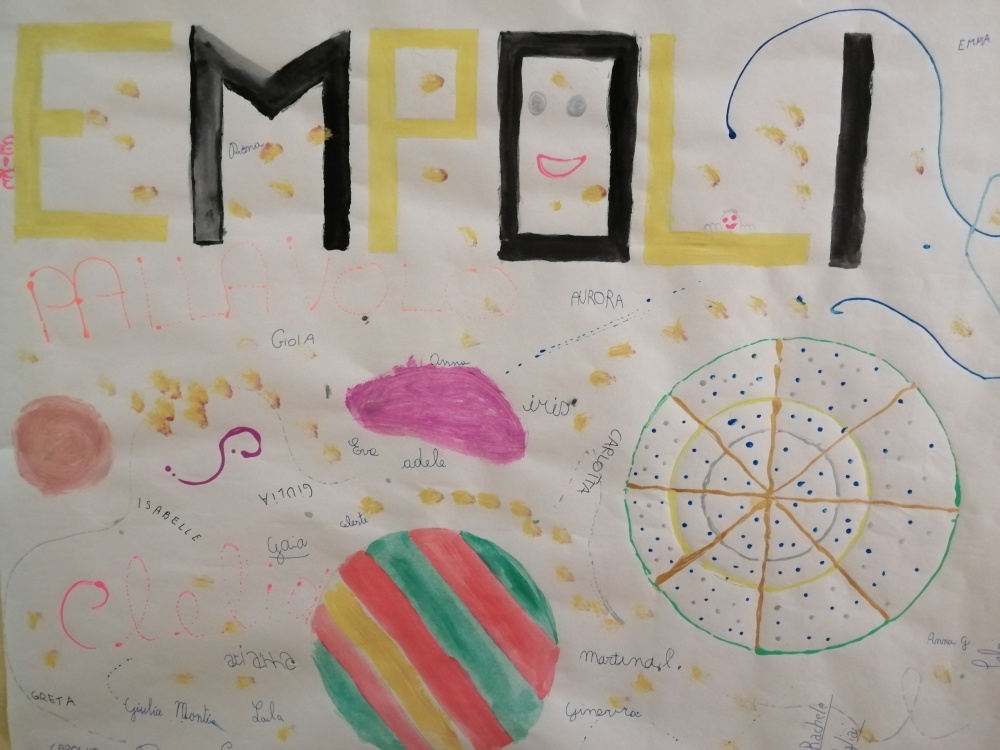 EMPOLI
EMMA
PALLAVOLO
AURORA
GIOIA
Anna
iris
Eva
adele
CARLOTTA
GIULIA
ISABELLE
celeste
Gaia
Clelia
arianna
martina l.
Anna G.
GRETA
Giulia Monti
Laila
Ginevra
Rachele